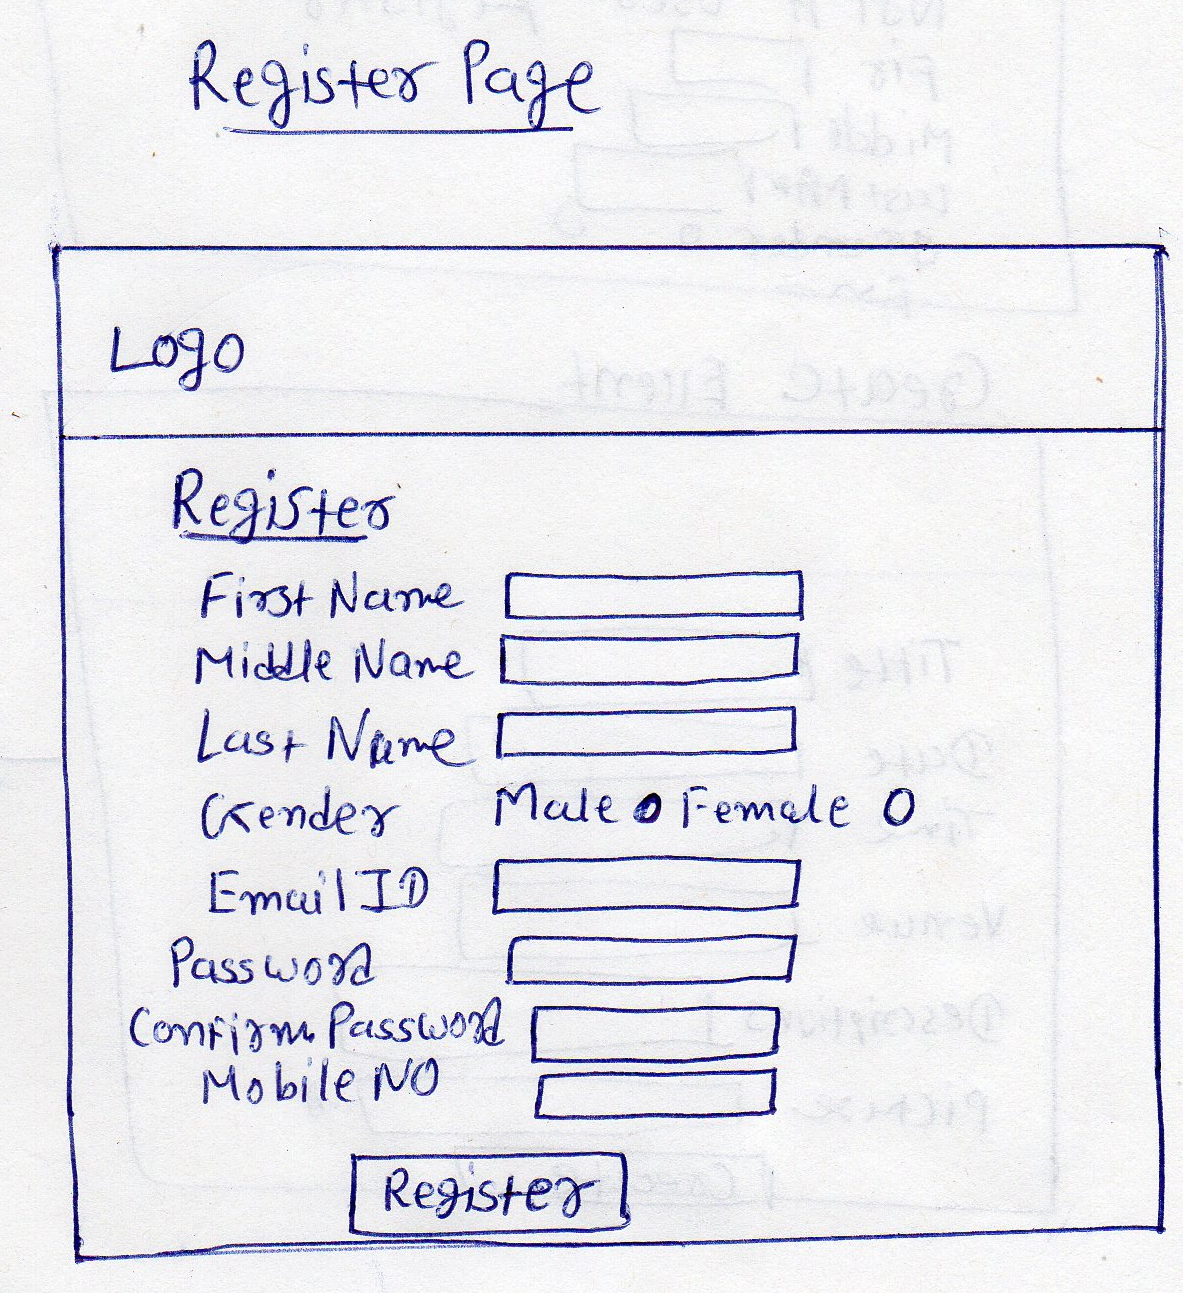 Register Page
Logo
Register
First Name
Middle Name
Last Name
Gender Male Female
Email ID
Password
Confirm Password
Mobile NO
Register